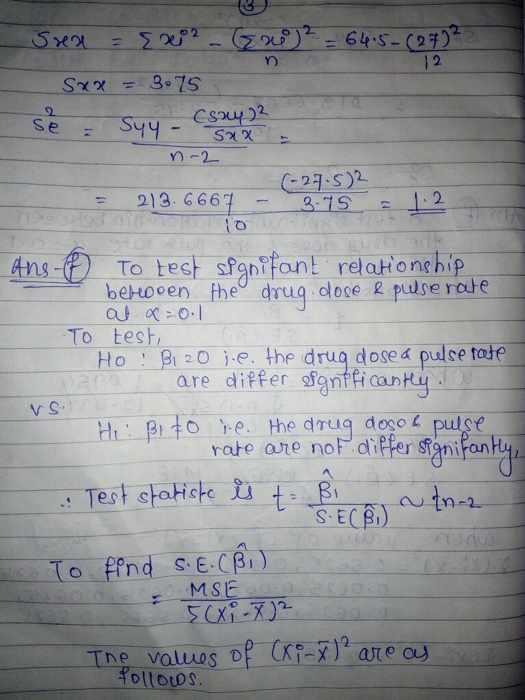 3
Sxx = Σxi² - (Σxi)²/n = 64.5 - (27)²/12
Sxx = 3.75
Se² = (Syy - (Sxy)²/Sxx)/(n-2) =
= (213.6667 - (-27.5)²/3.75)/10 = 1.2
Ans-(f) To test signifant relationship
between the drug dose & pulse rate
at α=0.1
To test,
H0 : β1=0 i.e. the drug dose & pulse rate
are differ significantly.
vs.
H1: β1≠0 i.e. the drug dose & pulse
rate are not differ signifantly,
∴ Test statistc is t = β̂1/S.E(β̂1) ~ tn-2
To find S.E.(β̂1)
= MSE/Σ(xi-x̄)²
The values of (xi-x̄)² are as
follows.